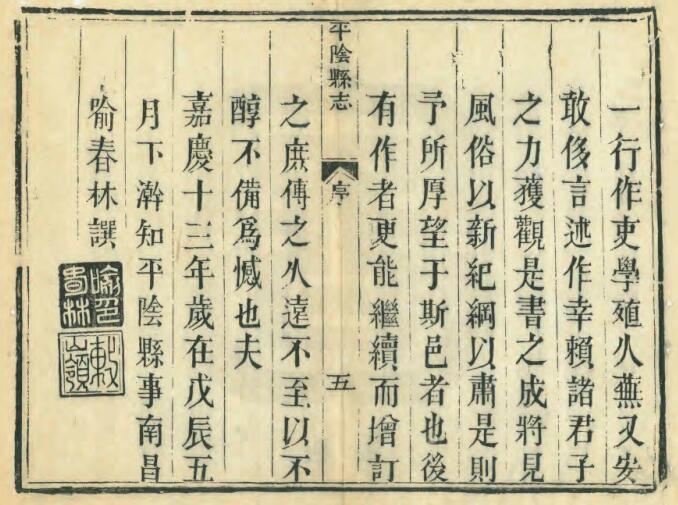 一行作吏學殖久蕪又安
敢侈言述作幸賴諸君子
之力獲觀是書之成將見
風俗以新紀綱以肅是則
予所厚望于斯邑者也後
有作者更能繼續而增訂
平陰縣志
序
五
之庶傳之久遠不至以不
醇不備爲憾也夫
嘉慶十三年歲在戊辰五
月下澣知平陰縣事南昌
喻春林譔
喻春林